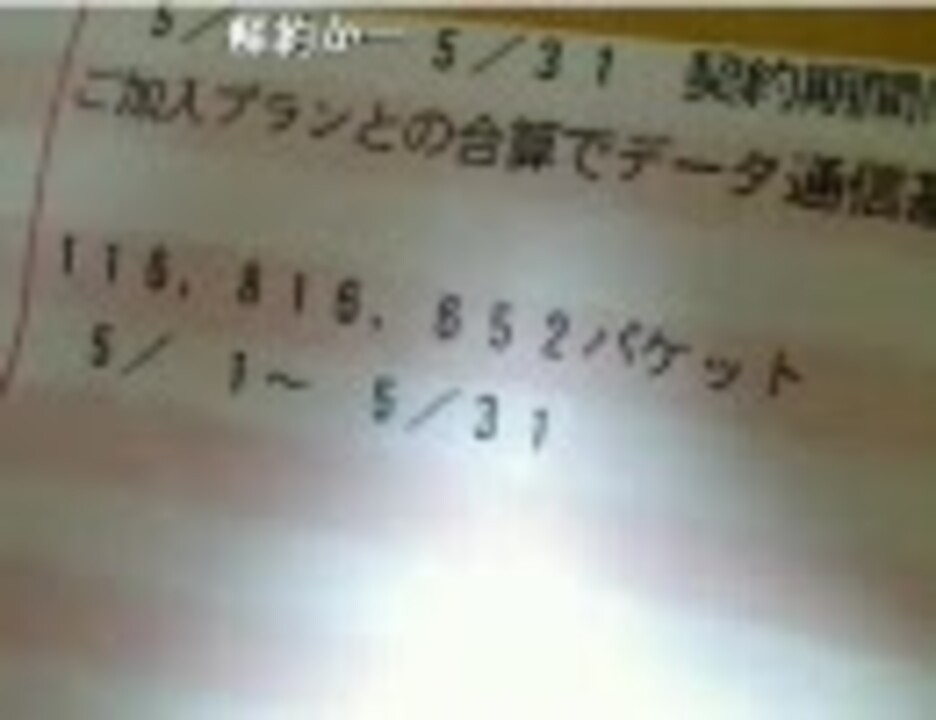 5/ 解約か 5/31 契約期間
ご加入プランとの合算でデータ通信基
115,816,652パケット
5/ 1～ 5/31